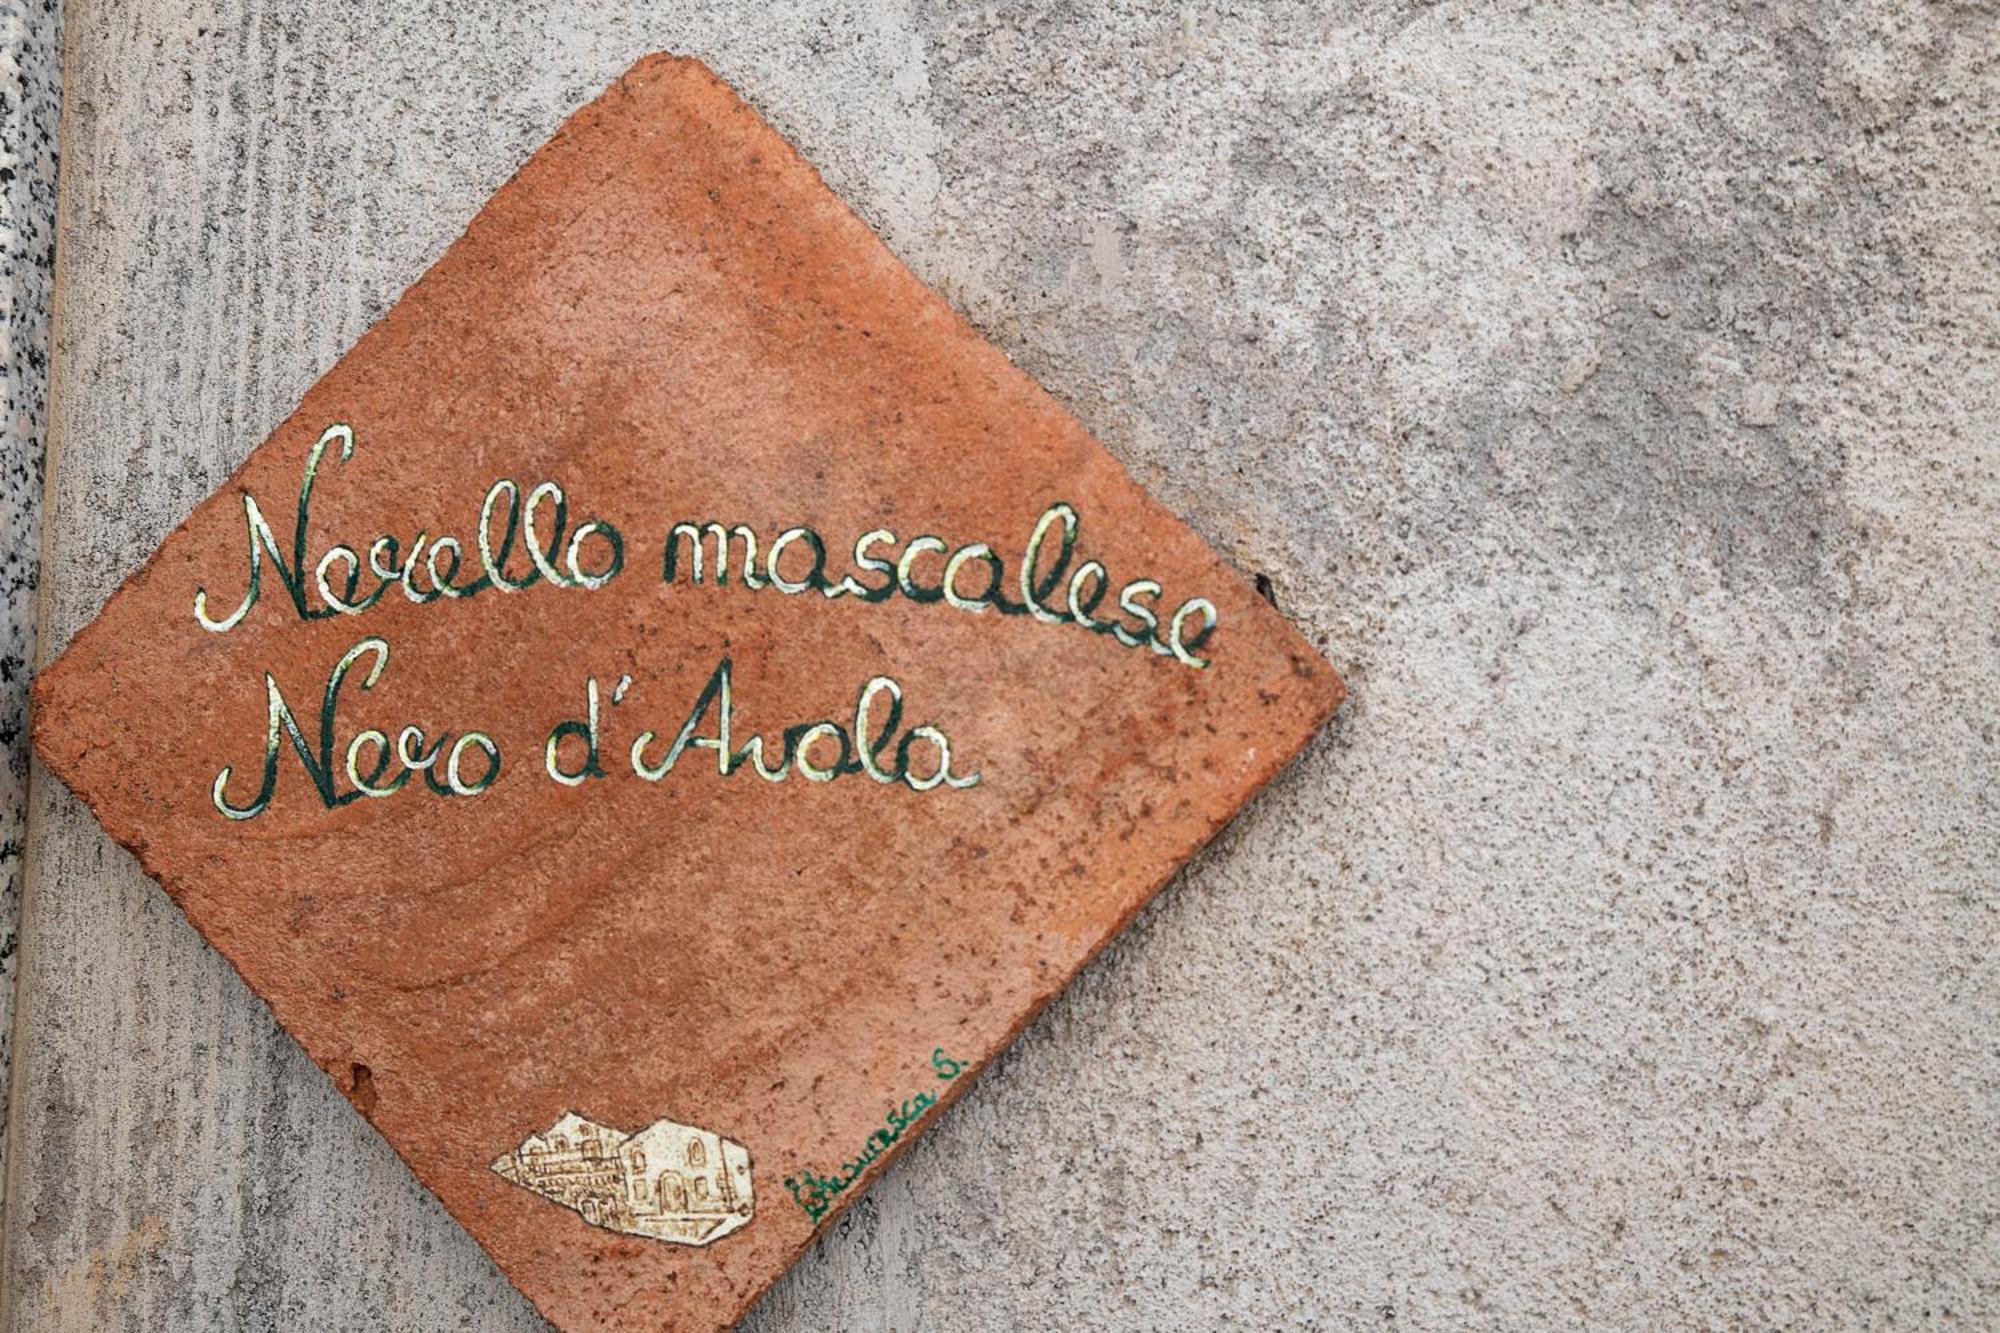 Nerello mascalese
Nero d'Avola
S.